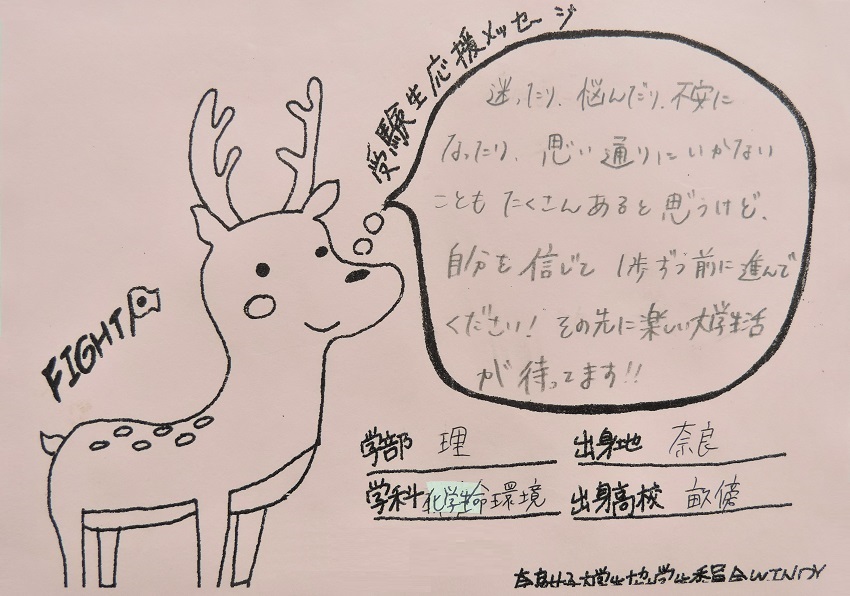 受験生応援メッセージ
迷ったり、悩んだり、不安に
なったり、思い通りにいかない
こともたくさんあると思うけど、
自分を信じて 1歩ずつ前に進んで
ください！その先に楽しい大学生活
が待ってます!!
FIGHT!
学部 理
出身地 奈良
学科 化学生命環境
出身高校 畝傍
奈良女子大学生協学生委員会WINDY